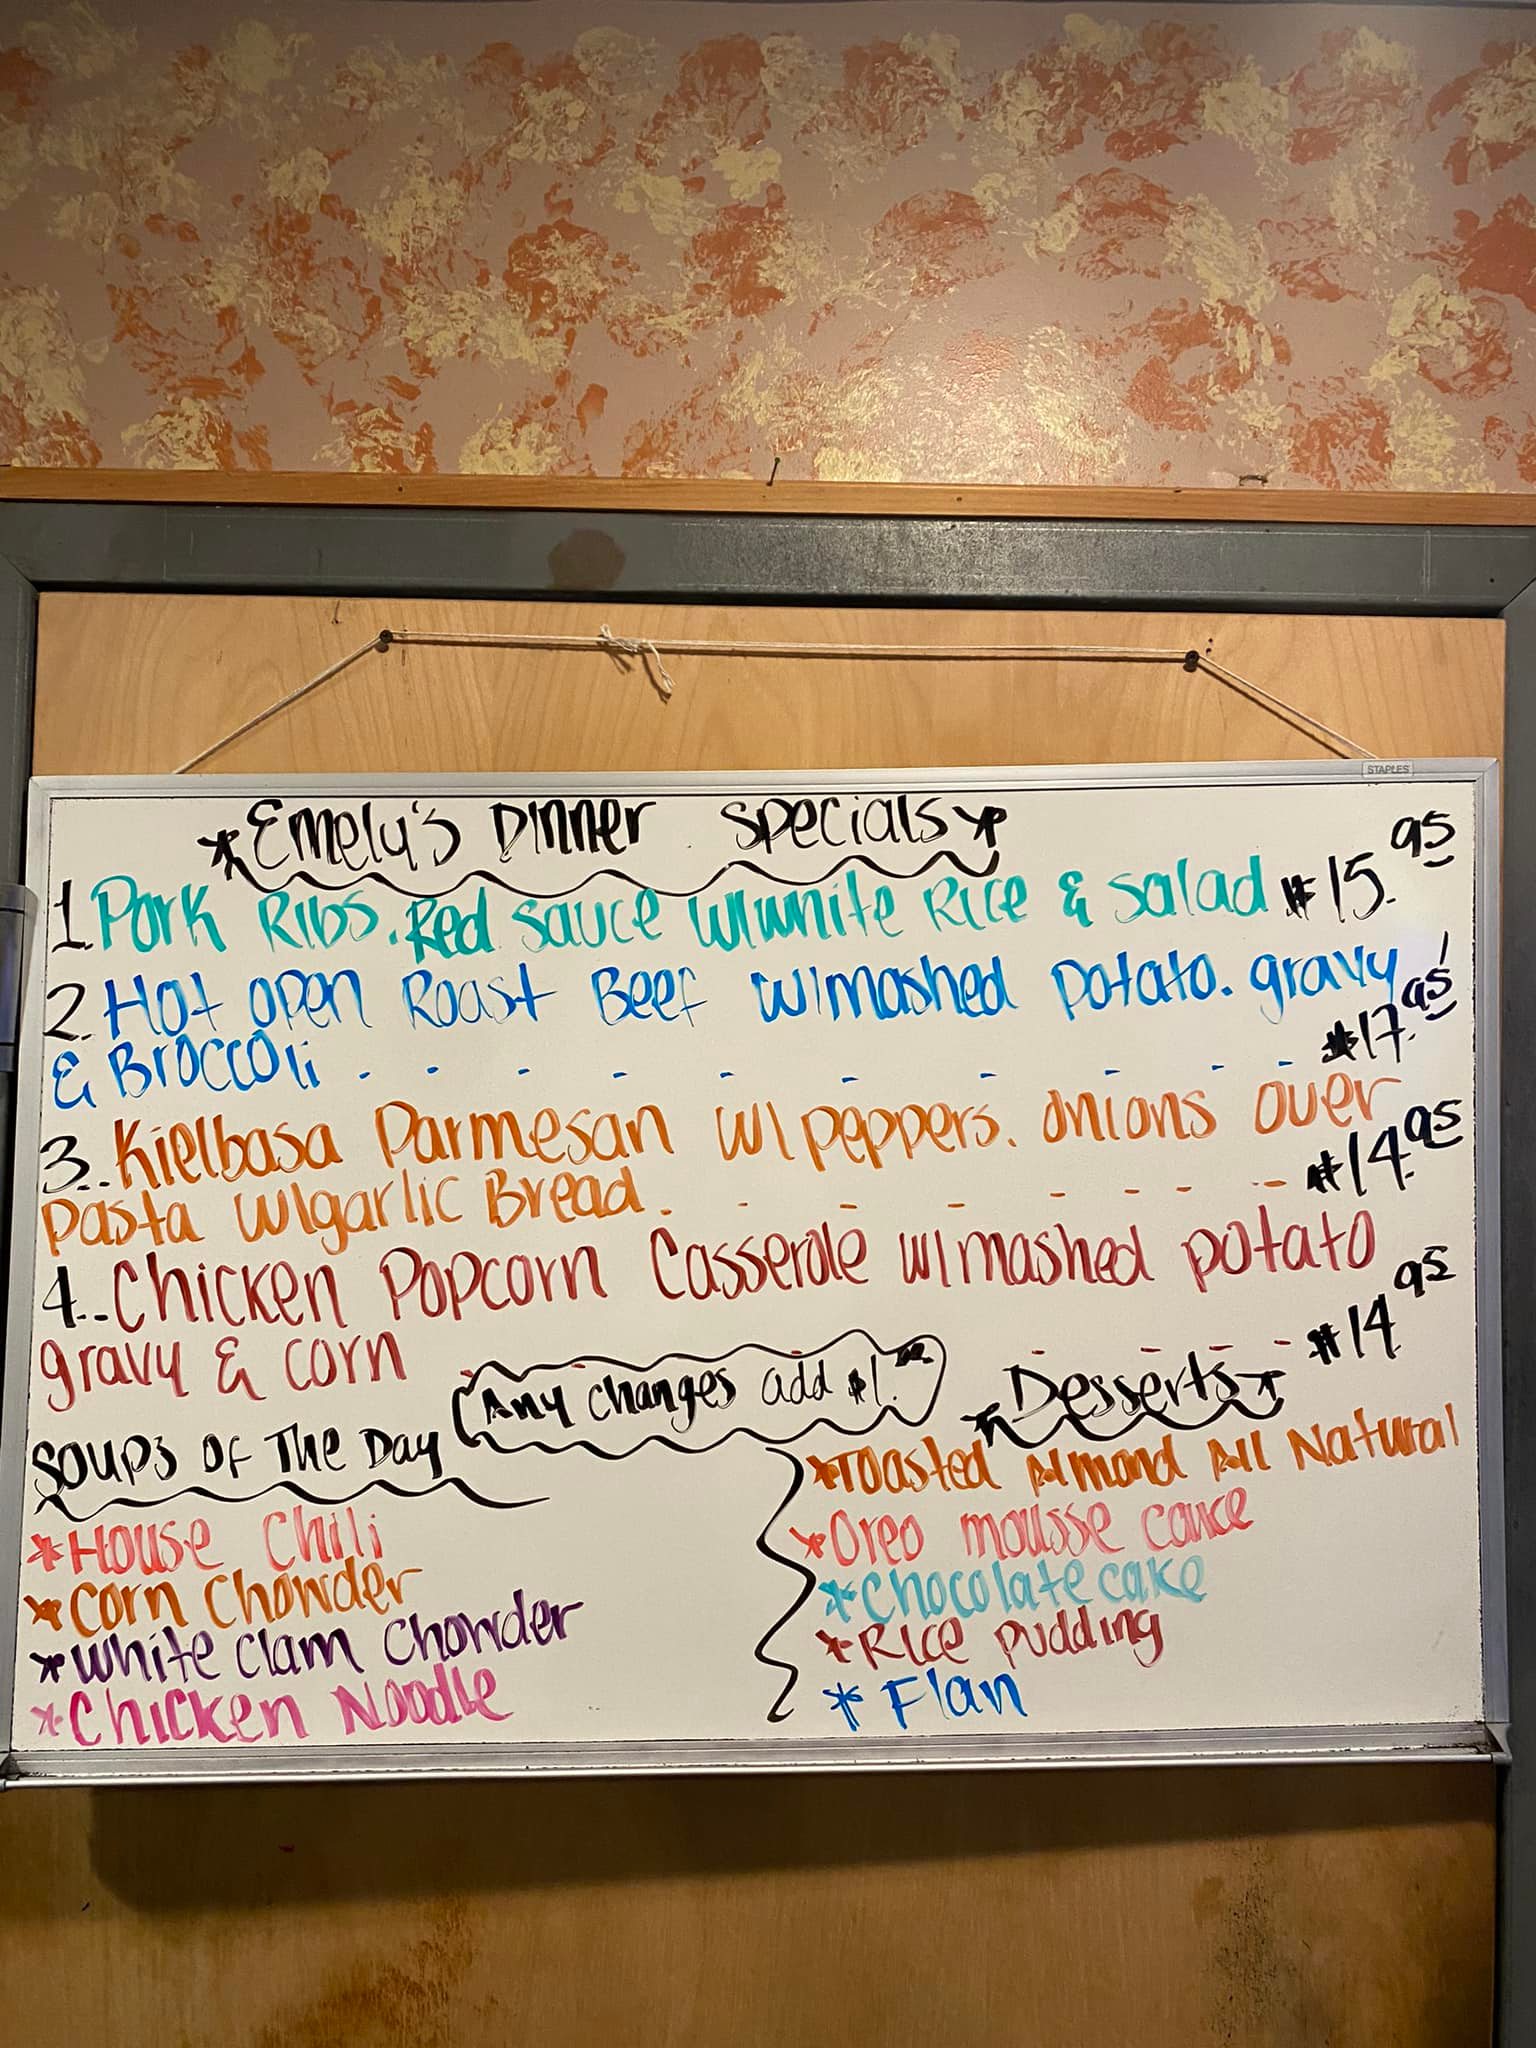 STAPLES
*Emely's Dinner Specials*
1. Pork Ribs. Red sauce w/white Rice & salad $15.95
2. Hot open Roast Beef w/mashed potato. gravy
& Broccoli . - - - - - - - - - $17.95
3.. Kielbasa Parmesan w/peppers. onions over
pasta w/garlic Bread. - - - - - - - $14.95
4.. Chicken Popcorn Casserole w/mashed potato
gravy & corn - - - - - $14.95
Any changes add $1.00
Soups of The Day
*House Chili
*Corn Chowder
*White Clam Chowder
*Chicken Noodle
*Desserts*
*Toasted Almond All Natural
*Oreo mousse cake
*Chocolate cake
*Rice pudding
*Flan